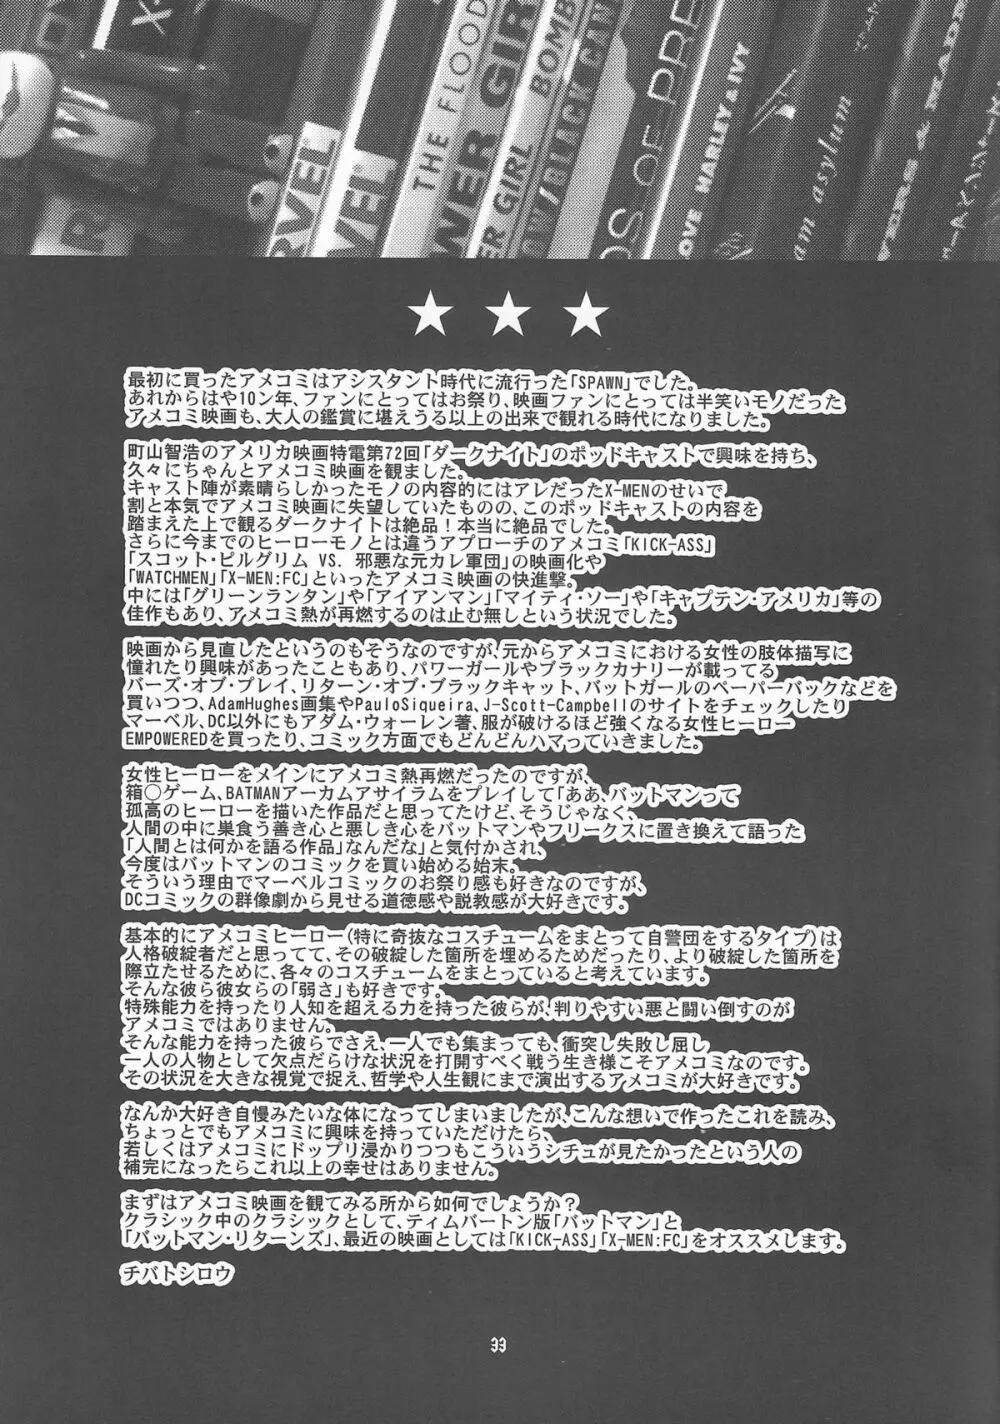 X-
MARVEL
MARVEL
THE FLOOD
POWER GIRL
POWER GIRL BOMB
/BLACK CAN
OF PRE
LOVE HARLEY & IVY
asylum
最初に買ったアメコミはアシスタント時代に流行った「SPAWN」でした。
あれからはや10ン年、ファンにとってはお祭り、映画ファンにとっては半笑いモノだった
アメコミ映画も、大人の鑑賞に堪えうる以上の出来で観れる時代になりました。
町山智浩のアメリカ映画特電第72回「ダークナイト」のポッドキャストで興味を持ち、
久々にちゃんとアメコミ映画を観ました。
キャスト陣が素晴らしかったモノの内容的にはアレだったX-MENのせいで
割と本気でアメコミ映画に失望していたものの、このポッドキャストの内容を
踏まえた上で観るダークナイトは絶品！本当に絶品でした。
さらに今までのヒーローモノとは違うアプローチのアメコミ「KICK-ASS」
「スコット・ピルグリム VS. 邪悪な元カレ軍団」の映画化や
「WATCHMEN」「X-MEN:FC」といったアメコミ映画の快進撃。
中には「グリーンランタン」や「アイアンマン」「マイティ・ソー」や「キャプテン・アメリカ」等の
佳作もあり、アメコミ熱が再燃するのは止む無しという状況でした。
映画から見直したというのもそうなのですが、元からアメコミにおける女性の肢体描写に
憧れたり興味があったこともあり、パワーガールやブラックカナリーが載ってる
バーズ・オブ・プレイ、リターン・オブ・ブラックキャット、バットガールのペーパーバックなどを
買いつつ、AdamHughes画集やPauloSiqueira、J-Scott-Campbellのサイトをチェックしたり
マーベル、DC以外にもアダム・ウォーレン著、服が破けるほど強くなる女性ヒーロー
EMPOWEREDを買ったり、コミック方面でもどんどんハマっていきました。
女性ヒーローをメインにアメコミ熱再燃だったのですが、
箱○ゲーム、BATMANアーカムアサイラムをプレイして「ああ、バットマンって
孤高のヒーローを描いた作品だと思ってたけど、そうじゃなく、
人間の中に巣食う善き心と悪しき心をバットマンやフリークスに置き換えて語った
「人間とは何かを語る作品」なんだな」と気付かされ、
今度はバットマンのコミックを買い始める始末。
そういう理由でマーベルコミックのお祭り感も好きなのですが、
DCコミックの群像劇から見せる道徳感や説教感が大好きです。
基本的にアメコミヒーロー(特に奇抜なコスチュームをまとって自警団をするタイプ)は
人格破綻者だと思ってて、その破綻した箇所を埋めるためだったり、より破綻した箇所を
際立たせるために、各々のコスチュームをまとっていると考えています。
そんな彼ら彼女らの「弱さ」も好きです。
特殊能力を持ったり人知を超える力を持った彼らが、判りやすい悪と闘い倒すのが
アメコミではありません。
そんな能力を持った彼らでさえ、一人でも集まっても、衝突し失敗し屈し
一人の人物として欠点だらけな状況を打開すべく戦う生き様こそアメコミなのです。
その状況を大きな視覚で捉え、哲学や人生観にまで演出するアメコミが大好きです。
なんか大好き自慢みたいな体になってしまいましたが、こんな想いで作ったこれを読み、
ちょっとでもアメコミに興味を持っていただけたら、
若しくはアメコミにドップリ浸かりつつもこういうシチュが見たかったという人の
補完になったらこれ以上の幸せはありません。
まずはアメコミ映画を観てみる所から如何でしょうか？
クラシック中のクラシックとして、ティムバートン版「バットマン」と
「バットマン・リターンズ」、最近の映画としては「KICK-ASS」「X-MEN:FC」をオススメします。
チバトシロウ
33